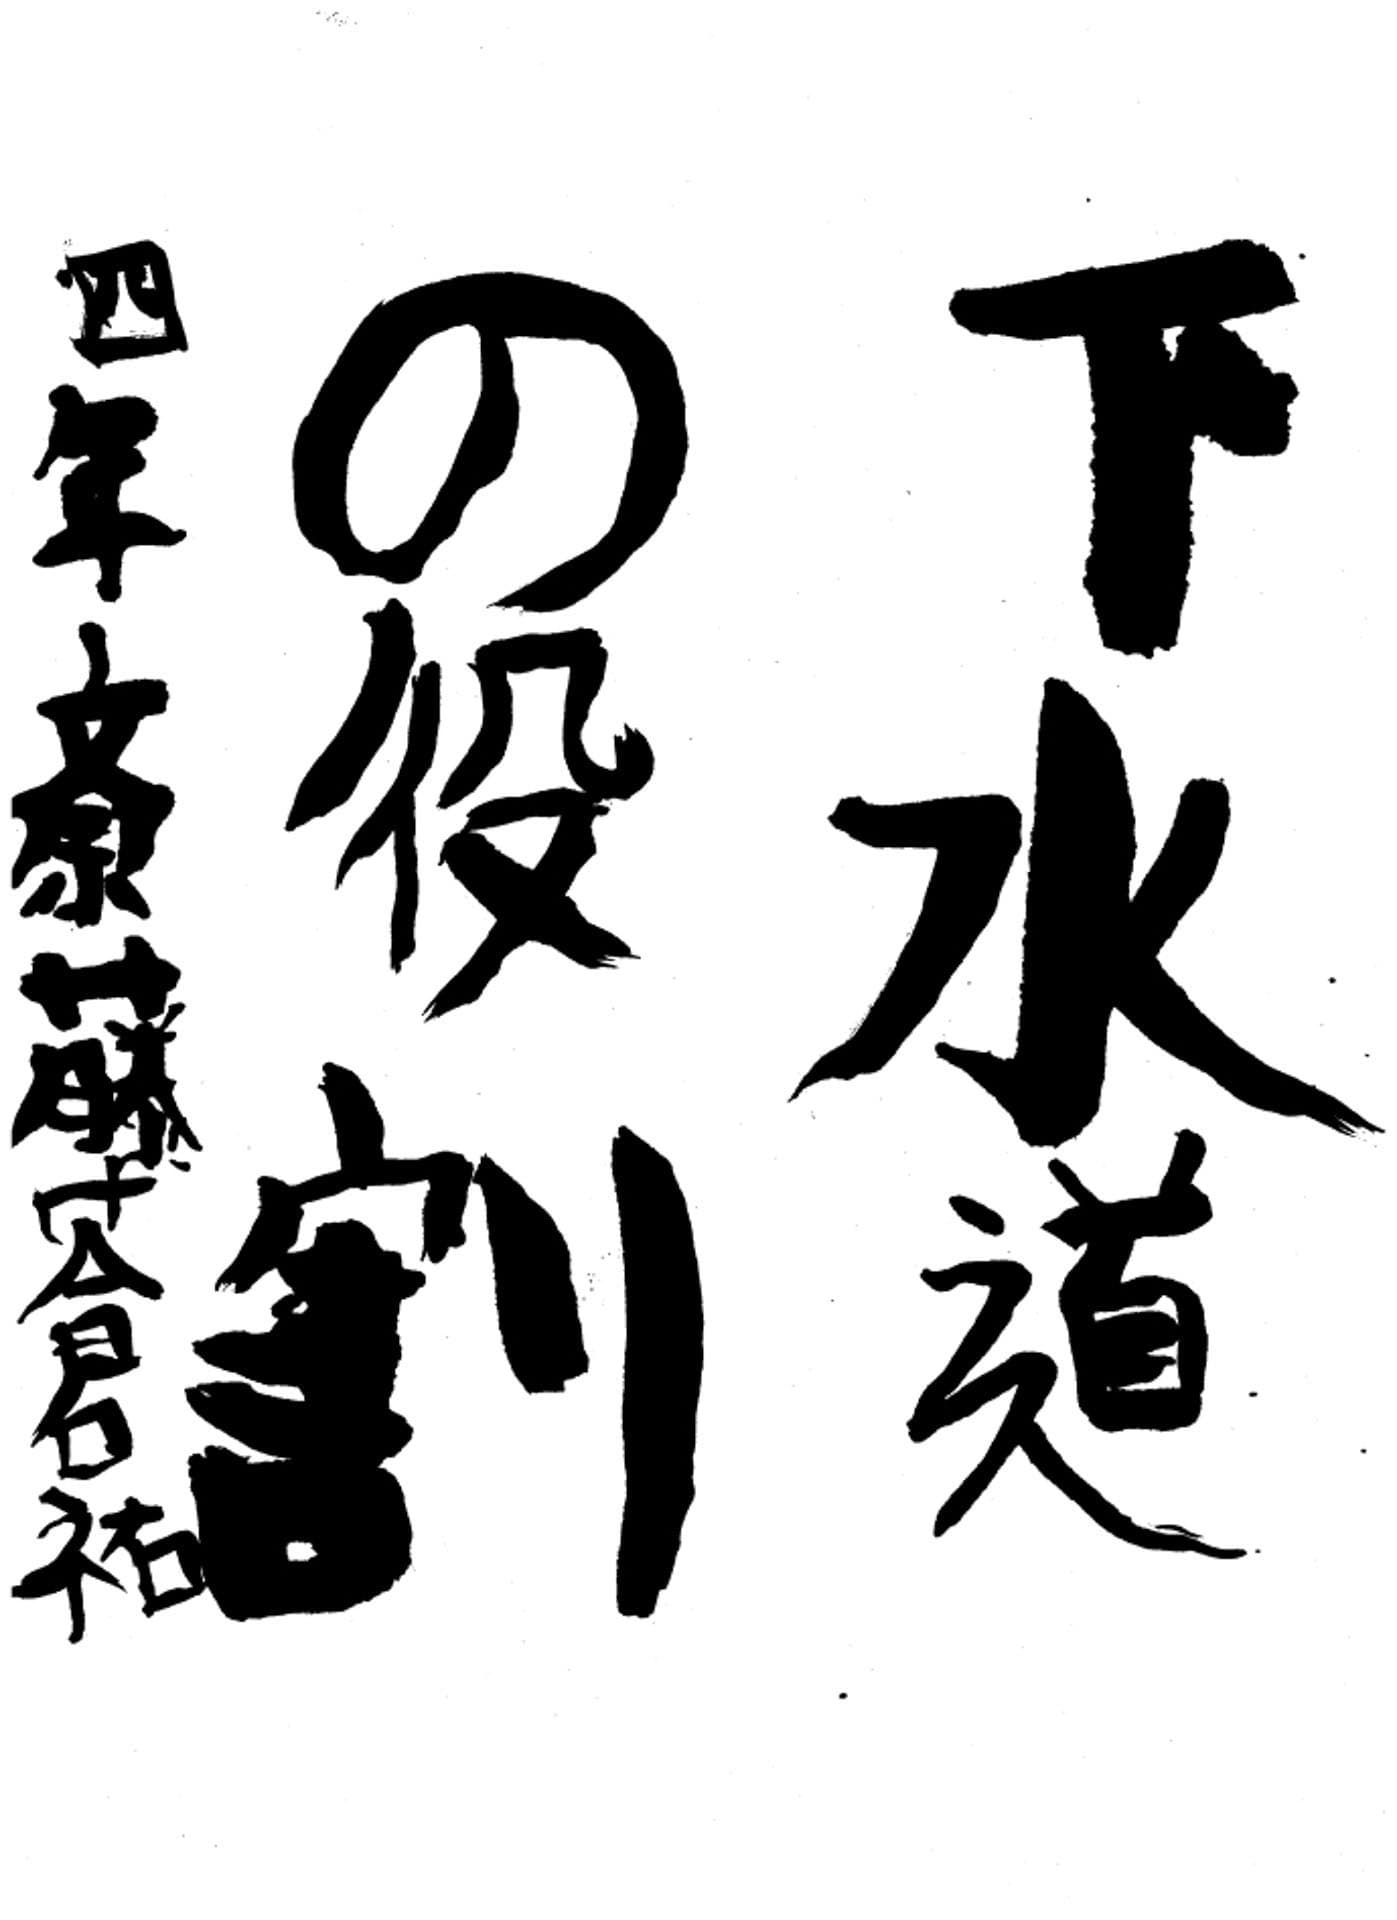 下水道
の役割
四年斎藤蒼祐